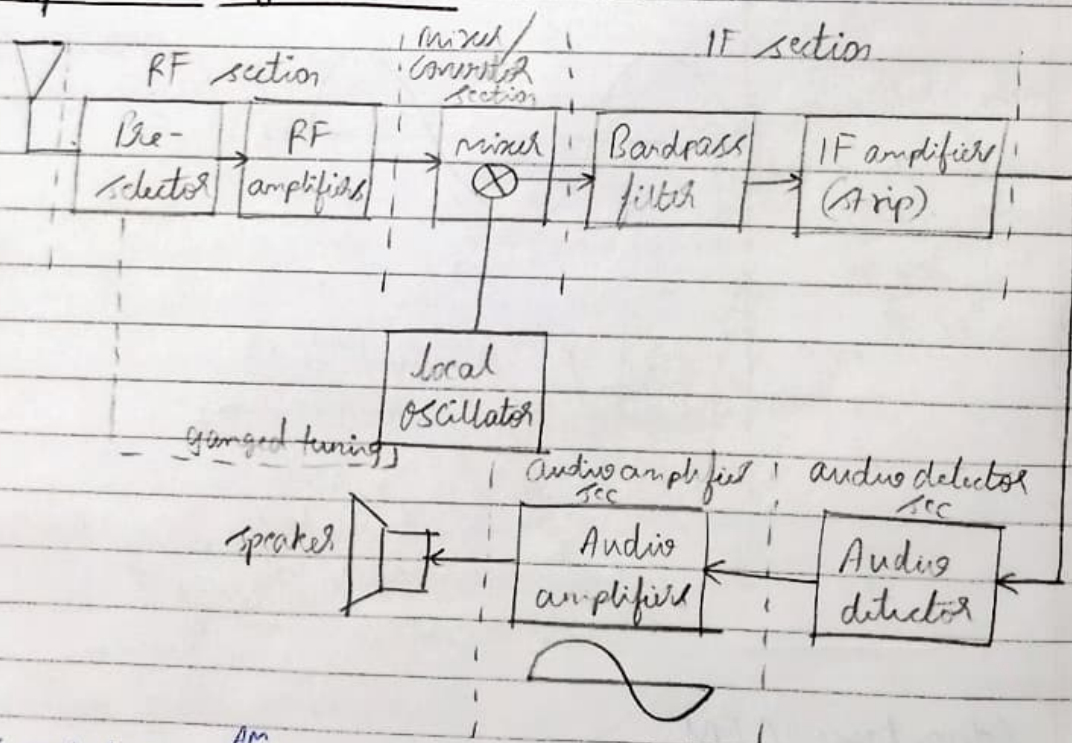 mixer/
IF section
RF section
converter
section
Pre-
selector
RF
amplifiers
mixer
Bandpass
filter
IF amplifiers
(strip)
local
oscillator
ganged tuning
audio amplifier
sec
audio detector
sec
speaker
Audio
amplifiers
Audio
detector
AM